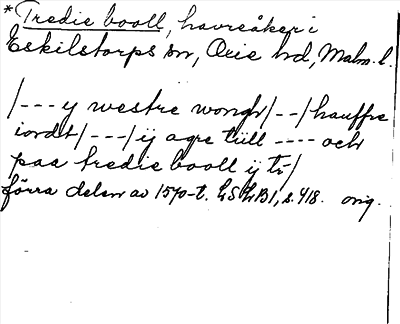 *Tredie booll, havreåker i
Eskilstorps sn, Oxie hd, Malm. l.
/--- y westre wongh/--/hauffre
iordt/---/ij agre tiill ---- och
paa tredie booll ij tr/
förra delen av 1570-t. LSLB1, s. 418. orig.